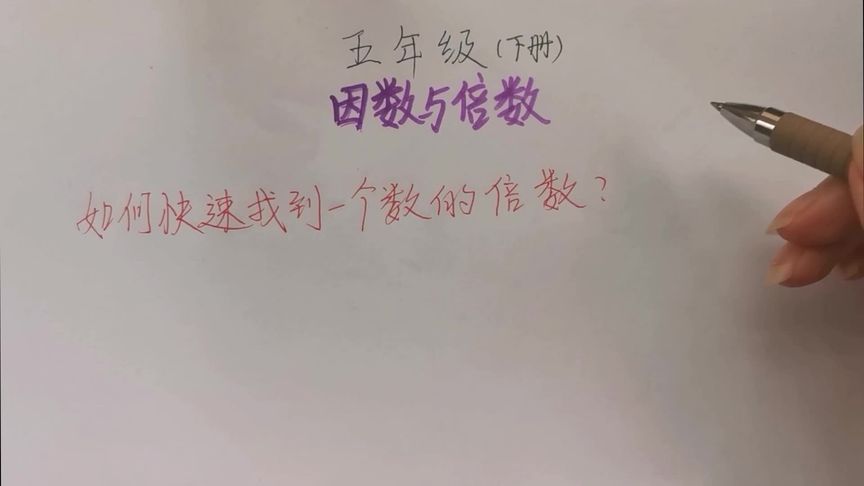 五年级(下册)
因数与倍数
如何快速找到一个数的倍数?